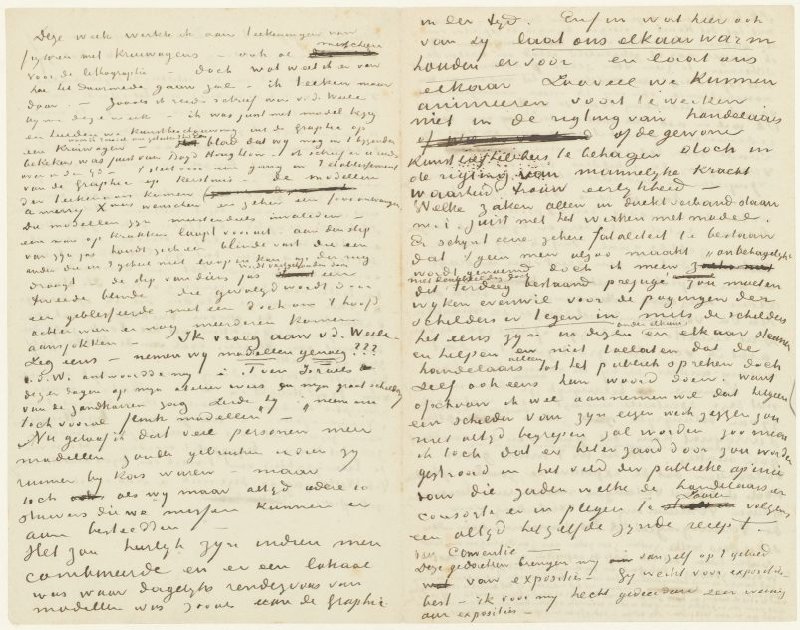 Deze week werkte ik aan teekeningen van
figuren met kruiwagens – ook al
menschen
voor de lithographie – doch wat weet ik er van
hoe het daarmede gaan zal – ik teeken maar
daar. – Zooals ik reeds schreef was v.d. Weele
by me deze week – ik was juist met model bezig
en hielden we kunstbeschouwing van de Graphic op
een kruiwagen
blad dat wy nog in 't byzonder
bekeken was juist van Boyd Houghton, ik schreef er U reeds
over in der tyd – 't stelt voor een gang in 't etablissement
van de Graphic op Kerstmis – De modellen
der teekenaars komen
a merry Xmas wenschen en zeker een fooi ontvangen.
Die modellen zyn meerendeels invaliden –
een man op krukken loopt vooruit, aan den slip
van zyn jas houdt zich een blinde vast die een
ander die in 't geheel niet loopen kan op den rug
draagt – de slip van diens jas
wordt vastgehouden door
een
tweede blinde die gevolgd wordt door
een geblesseerde met een doek om 't hoofd
achter wien er nog meerderen komen
aansjokken – Ik vroeg aan v.d. Weele –
Zeg eens – nemen wy modellen genoeg???
v.d.W. antwoordde my : Toen Israels
dezer dagen op myn atelier was en myn groot schildery
van de zandkarren zag zeide hy : "neem nu
toch vooral flink modellen" –
Nu geloof ik dat veel personen meer
modellen zouden gebruiken indien zy
ruimer by kas waren – maar
toch als wy maar altyd iedere 10
stuivers die we missen kunnen er
aan besteedden –
Het zou heerlyk zyn indien men
combineerde en er een lokaal
was waar dagelyks rendezvous van
modellen was zooals aan de Graphic
in der tyd. Enfin wat hier ook
van zy laat ons elkaar warm
houden er voor en laat ons
elkaar Zooveel we kunnen
animeeren voort te werken
niet in de rigting van handelaars
of de gewone
kunst te behagen doch in
de rigting van mannelyke kracht
waarheid trouw eerlykheid –
Welke zaken allen in direkt verband staan
m.i. juist met het werken met model.
Er schynt eene zekere fataliteit te bestaan
dat 't geen men alzoo maakt "onbehagelyk"
wordt genoemd doch ik meen
dit terdeeg bestaand prejugé zou moeten
wyken evenwel voor de pogingen der
schilders er tegen in mits de schilders
het eens zyn
onder elkaar
in dezen en elkaar steunen
en helpen en niet toelaten dat de
handelaars
alleen
tot het publiek spreken doch
Zelf ook eens hun woord doen. Want
ofschoon ik wel aannemen wil dat hetgeen
een schilder van zyn eigen werk zeggen zou
niet altyd begrepen zal worden zoo meen
ik toch dat er beter zaad door zou worden
gestrooid in het veld der publieke opinie
dan die zaden welke de handelaars en
consorten er in plegen te
zaaien
volgens
een altyd hetzelfde zynde recept.
der Conventie –
Deze gedachten brengen my van zelf op 't gebied
van exposities – Gy werkt voor exposities
best – ik voor my hecht gedecideerd zeer weinig
aan exposities –